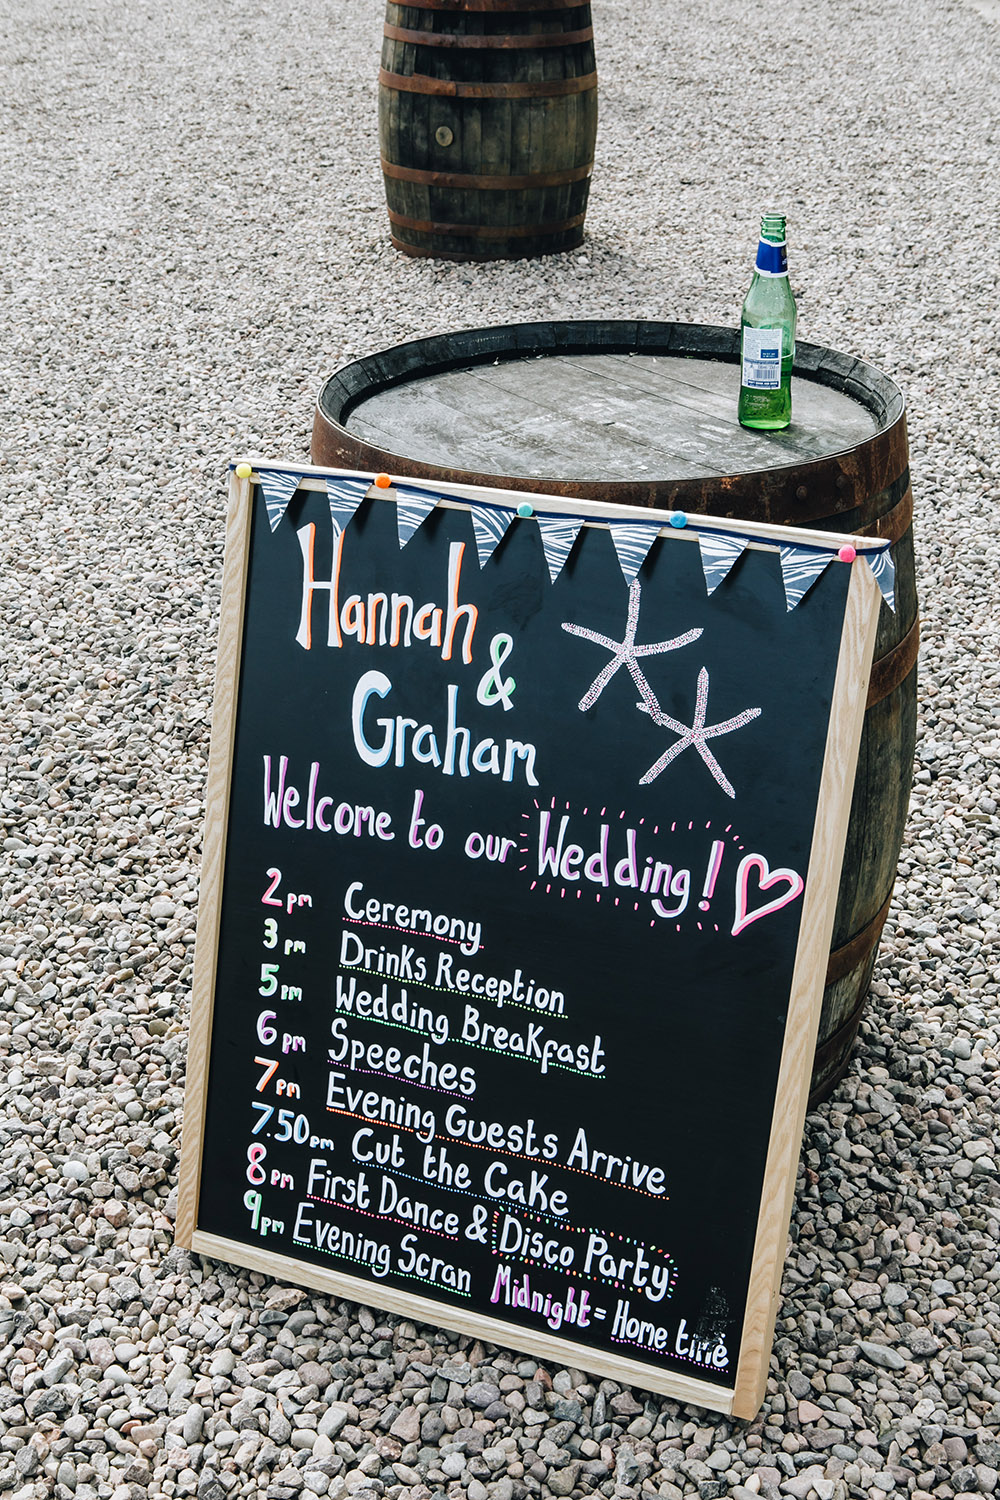 Hannah
&
Graham
Welcome to our Wedding!
2pm Ceremony
3pm Drinks Reception
5pm Wedding Breakfast
6pm Speeches
7pm Evening Guests Arrive
7.50pm Cut the Cake
8pm First Dance & Disco Party
9pm Evening Scran Midnight = Home time